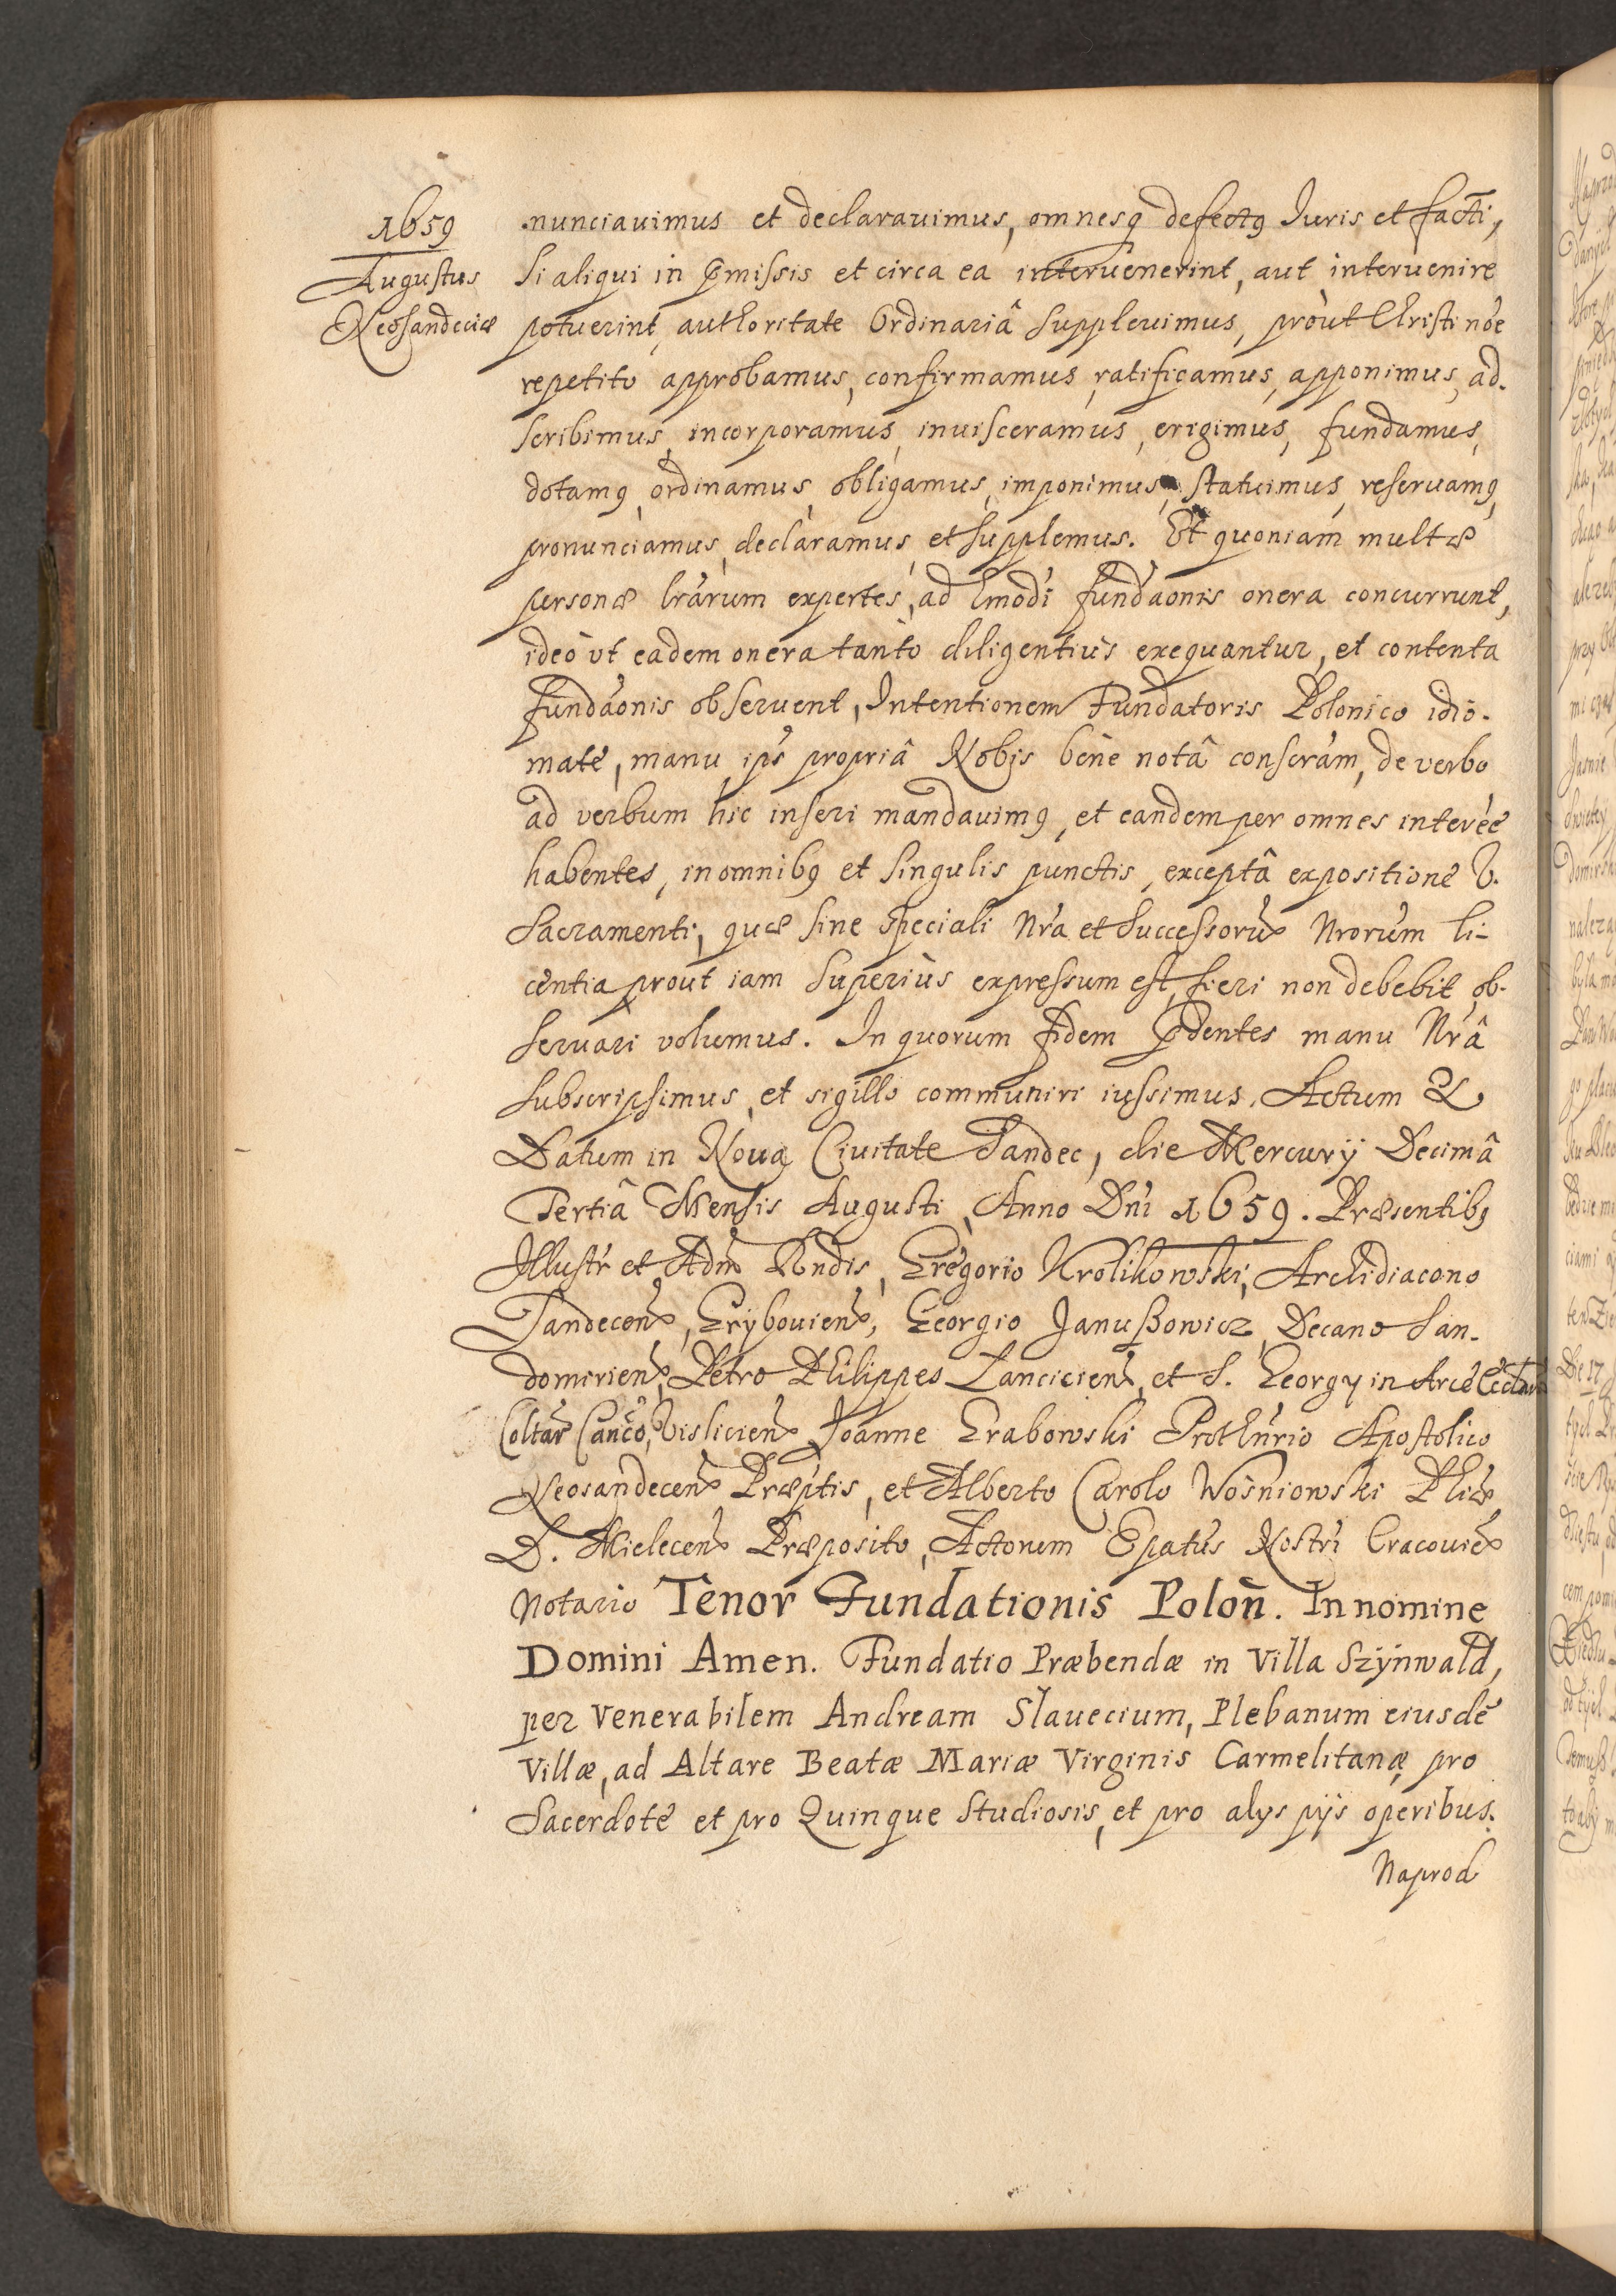 1659
Augustus
Neosandeciæ
nunciauimus et declarauimus, omnesq defectꝯ Iuris et facti,
si aliqui in p̄missis et circa ea interuenerint, aut interuenire
potuerint, authoritate Ordinariâ suppleuimus, prout Christi nōe
repetito approbamus, confirmamus, ratificamus, apponimus, ad-
scribimus, incorporamus, inuisceramus, erigimus, fundamus,
dotamꝯ, ordinamus, obligamus, imponimus, statuimus, reseruamꝯ,
pronunciamus, declaramus, et supplemus. Et quoniam multæ
personæ lrārum expertes, ad hmōdi fundāonis onera concurrunt,
ideò vt eadem onera tantò diligentiùs exequantur, et contenta
fundāonis obseruent, Intentionem Fundatoris Polonico idio-
mate, manu ipsˢ propriâ Nobis bene notâ conscrām, de verbo
ad verbum hic inseri mandauimꝯ, et eandem per omnes interēe
habentes, in omnibꝯ et singulis punctis, exceptâ expositione V.
Sacramenti, quæ sine speciali Nrā et Successorū Nrorum li-
centia, prout iam superiùs expressum est, fieri non debebit, ob-
seruari volumus. In quorum fidem p̄dentes manu Nrâ
subscripsimus, et sigillo communiri iussimus. Actum &
Datum in Noua Ciuitate Sandec, die Mercurÿ Decimâ
Tertiâ Mensis Augusti, Anno Dni 1659. Præsentibꝯ
Illustr et Adm Rndis, Gregorio Krolikowski, Archidiacono
Sandecen, Gryboviens, Georgio Janußowicz, Decano San-
domirien, Petro Philippes Lancicien, et S. Georgy in Arce
Canco, Vislicien Joanne Grabowski Prothnrio Apostolico
Neosandecen Præptis, et Alberto Carolo Wośniowski Phiæ
D. Mielecen Præposito, Actorum Epatûs Nostri Cracouien
Notario Tenor Fundationis Polon̄. In nomine
Domini Amen. Fundatio Præbendæ in Villa Szÿnwald,
per Venerabilem Andream Slauecium, Plebanum eiusdē
Villæ, ad Altare Beatæ Mariæ Virginis Carmelitanæ, pro
Sacerdote et pro Quinque Studiosis, et pro alys pijs operibus.
Naprod